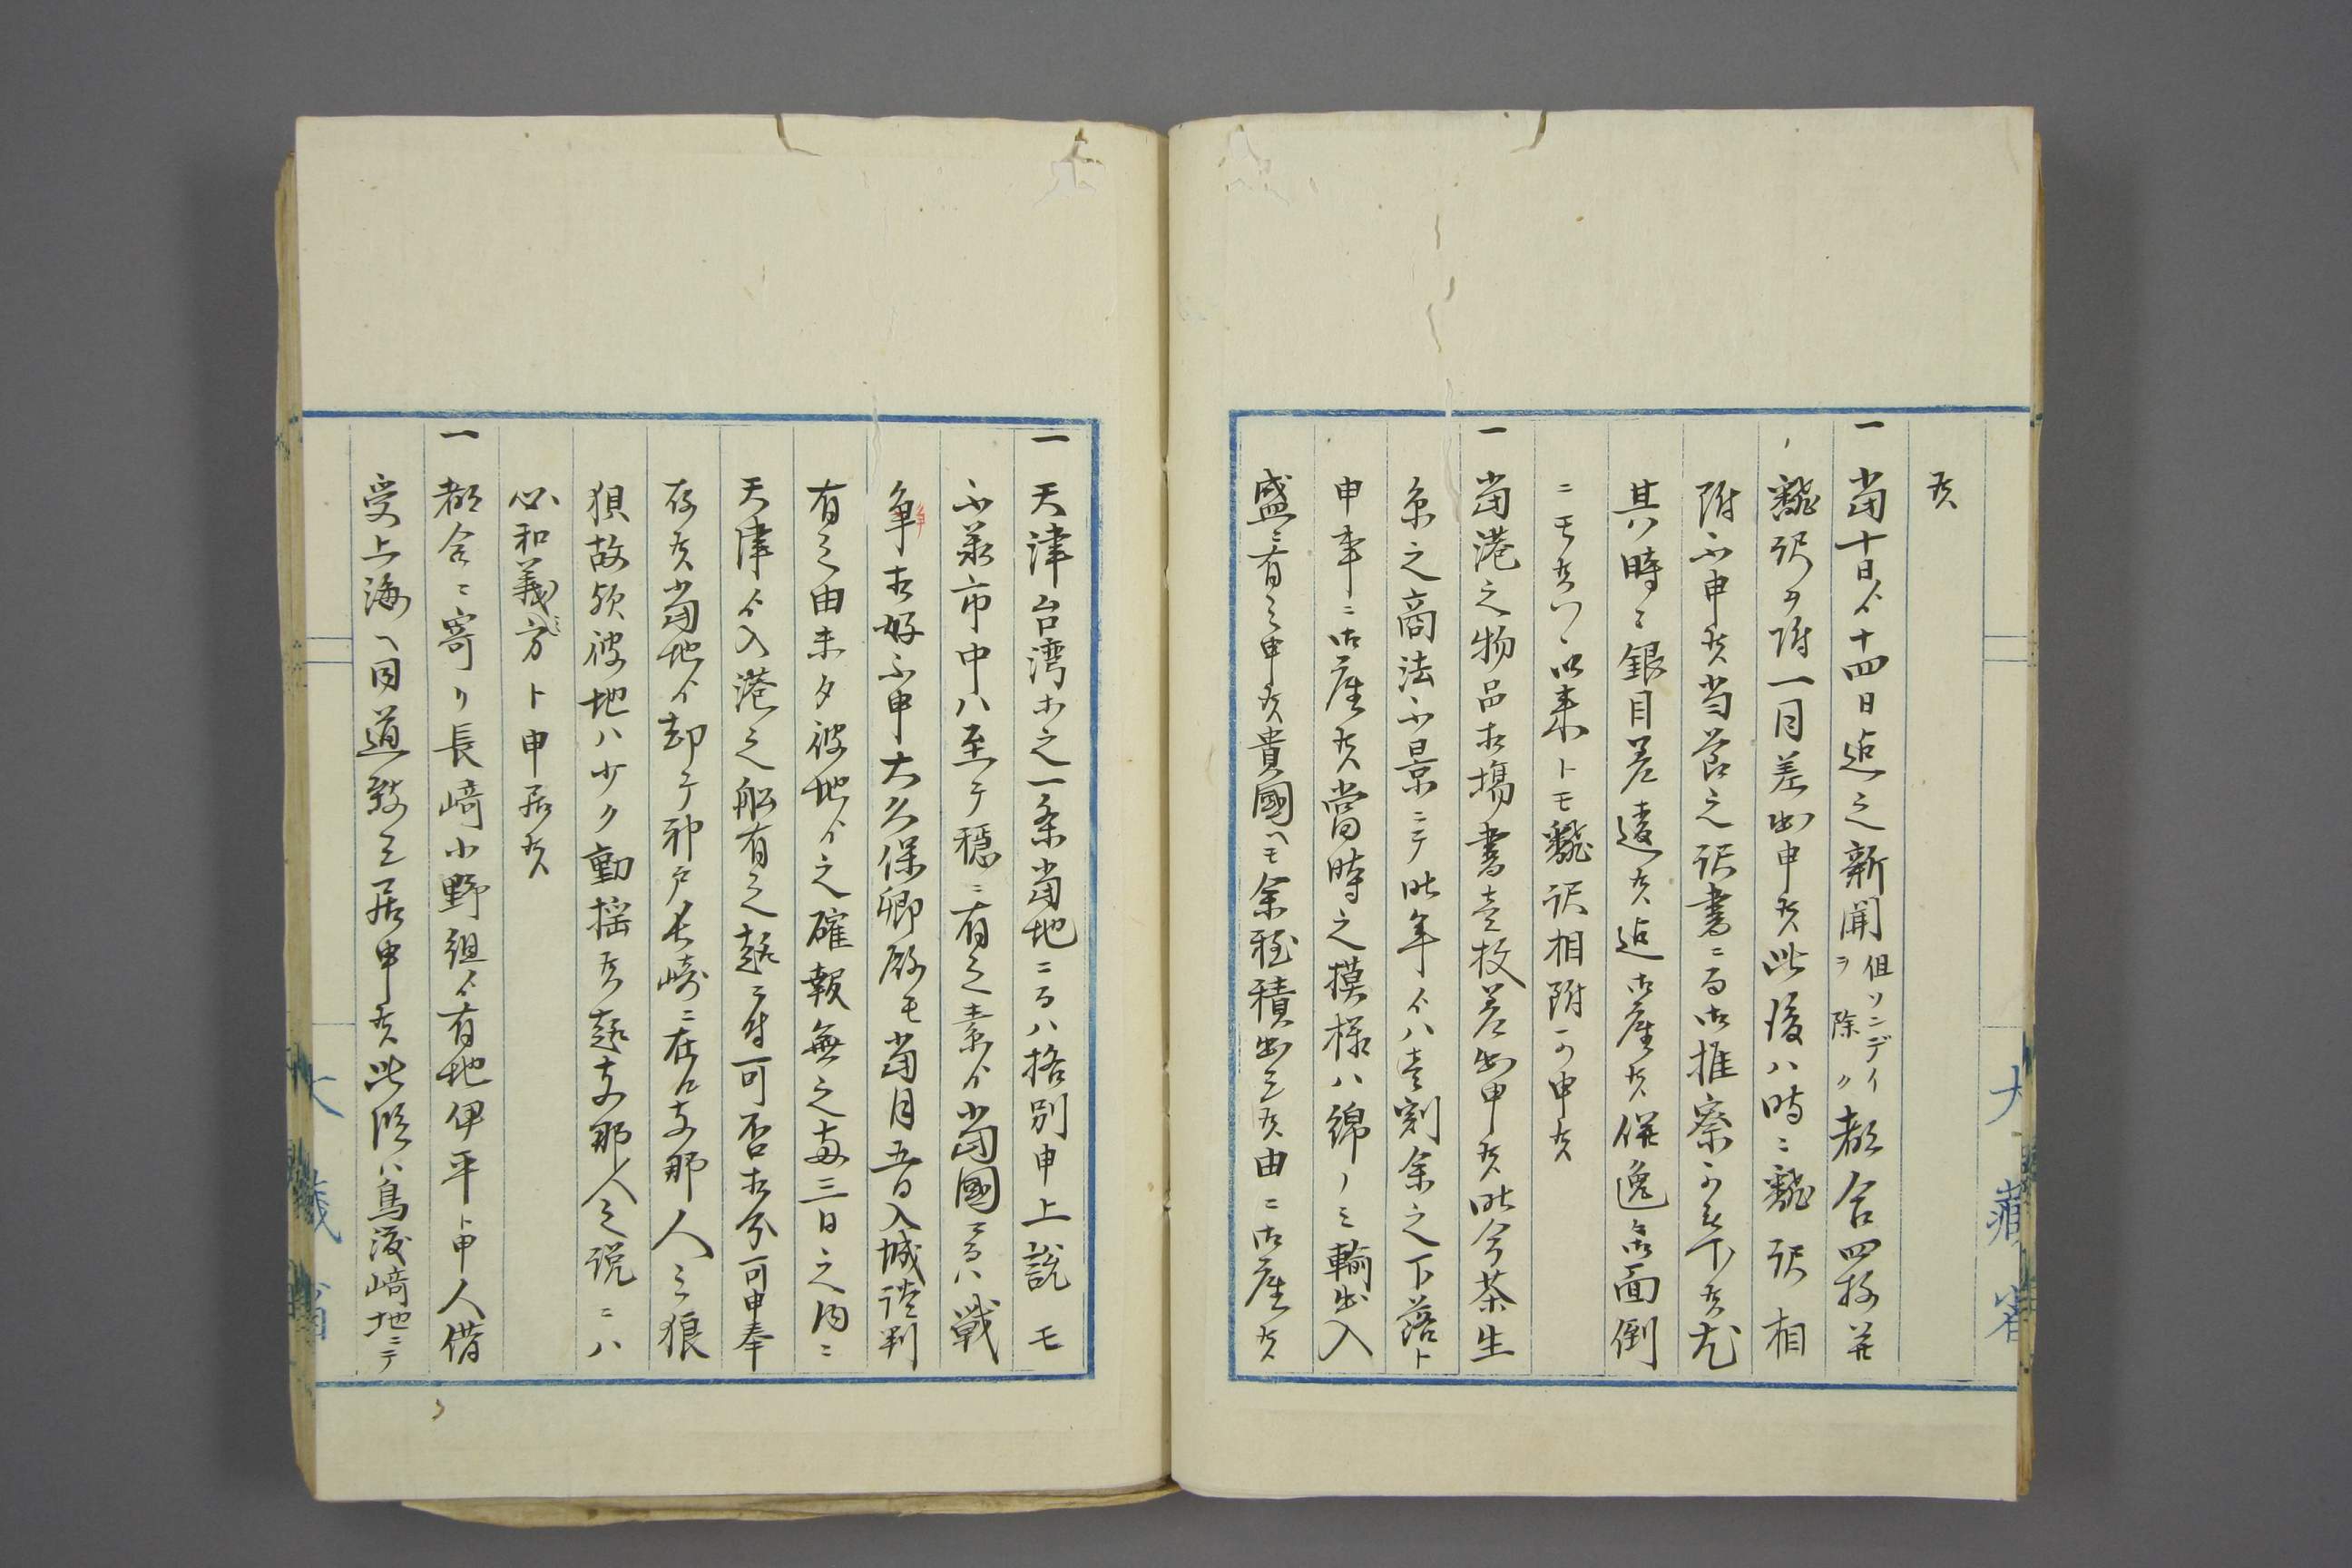 候
一当十日ゟ十四日迠之新聞但ソンデイヲ除ク都合四枚并
飜訳ヲ附一同差出申候此後ハ時ニ飜訳相
附不申候当節之訳書ニ而御推察可被下候尤
其時々銀目差違候迠御座候併逸々御面倒
ニモ候ハヽ以来トモ飜訳相附可申候
一当港之物品相場書壱枚差出申候昨今茶生
糸之商法不景ニテ昨年ゟハ壱割余之下落ト
申事ニ御座候當時之摸様ハ綿ノミ輸出入
盛ニ有之申候貴國ヘモ余程積出シ候由ニ御座候
一天津台湾等之一条当地ニ而ハ格別申上説モ
不承市中ハ至テ穏ニ有之素ゟ当國ニ而ハ戦
争相好不申大久保卿殿モ当月五日入城談判
有之由未タ彼地ゟ之確報無之両三日之内ニ
天津ゟ入港之船有之趣ニ付可否相分可申奉
存候当地ゟ却テ神戸長崎ニ在ル支那人之狼
狽故欤彼地ハ少ク動揺候趣支那人之説ニハ
必和義方ト申居候
一都合ニ寄リ長﨑小野組ゟ有地伊平ト申人借
受上海ヘ同道致シ居申候此段ハ鳥渡﨑地ニテ
大藏省
大藏省